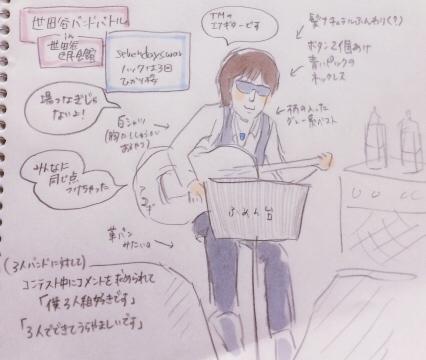 世田谷バンドバトル
in
世田谷
区民会館
sevendayswar
ひかり
TMの
エアギターです
髪ナチュラルふんわり(?)
ボタン2個あけ
青いバックの
ネックレス
柄の入った
グレー系ベスト
場つなぎじゃ
ないよ!
白シャツ
みんなに
同じ点
つけちゃった
ふめん台
革パン
みたいな
(3人バンドに対して)
コンテスト中にコメントを求められて
「僕3人組好きです」
「3人でできてうらやましいです」